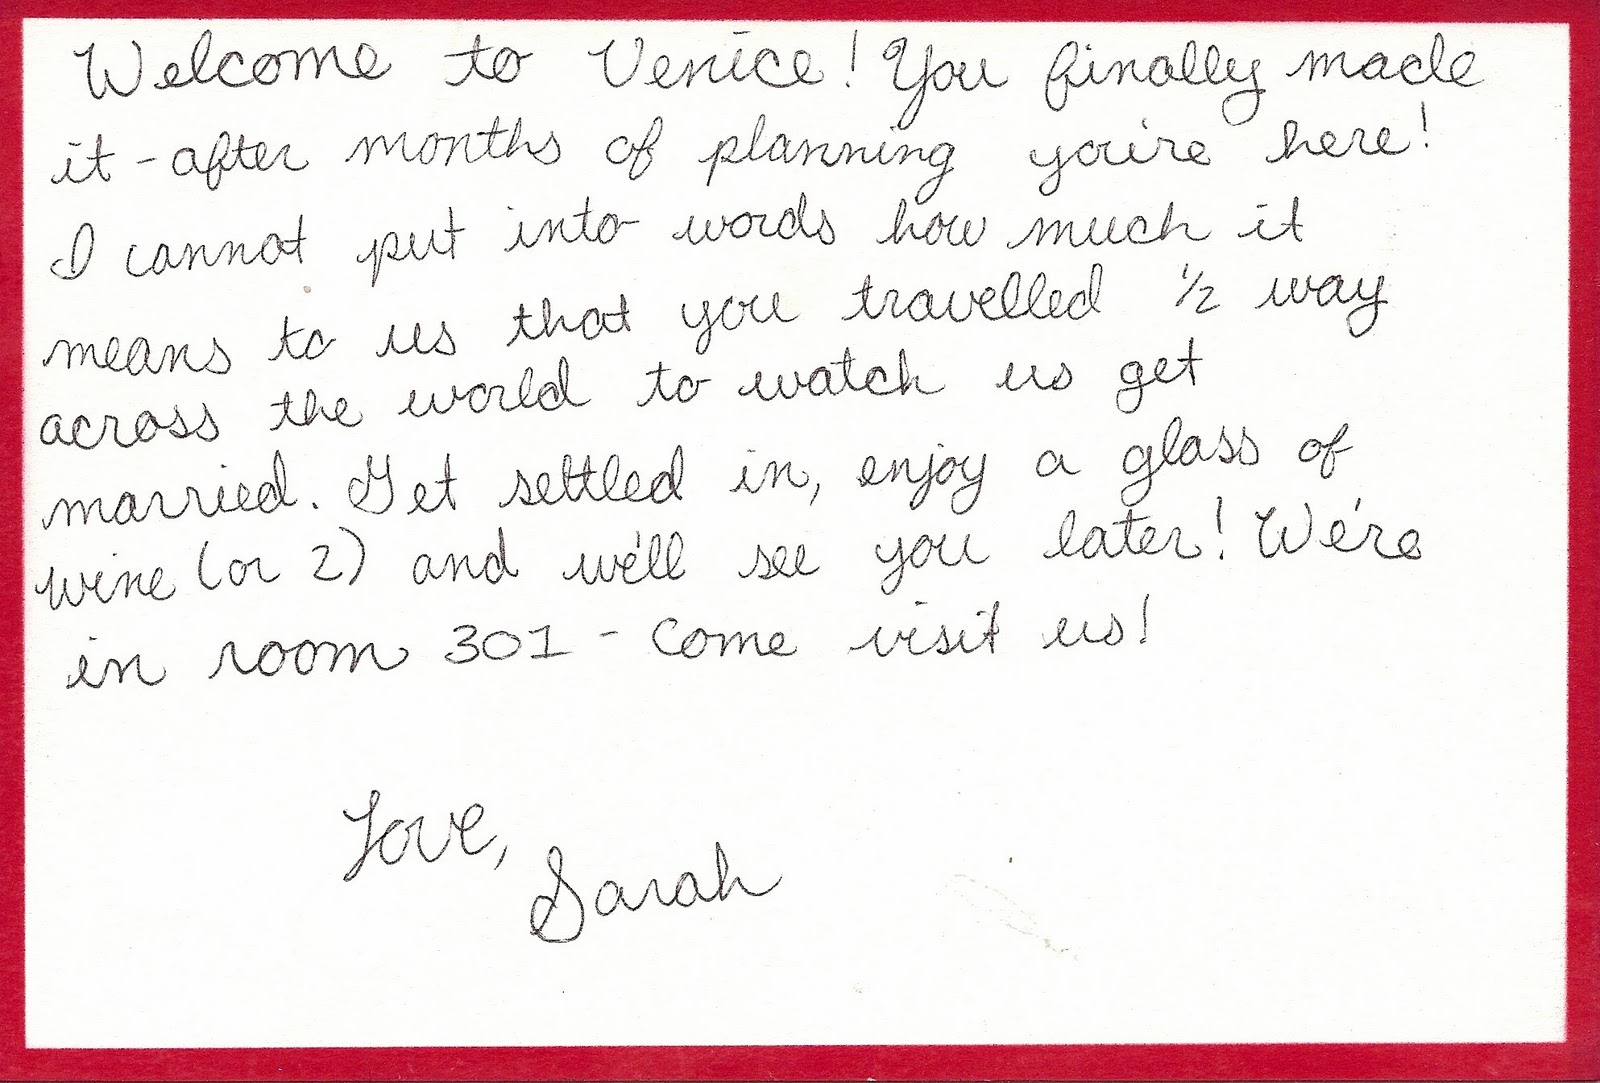 Welcome to Venice! You finally made
it - after months of planning you're here!
I cannot put into words how much it
means to us that you travelled 1/2 way
across the world to watch us get
married. Get settled in, enjoy a glass of
wine (or 2) and we'll see you later! We're
in room 301 - come visit us!
Love,
Sarah